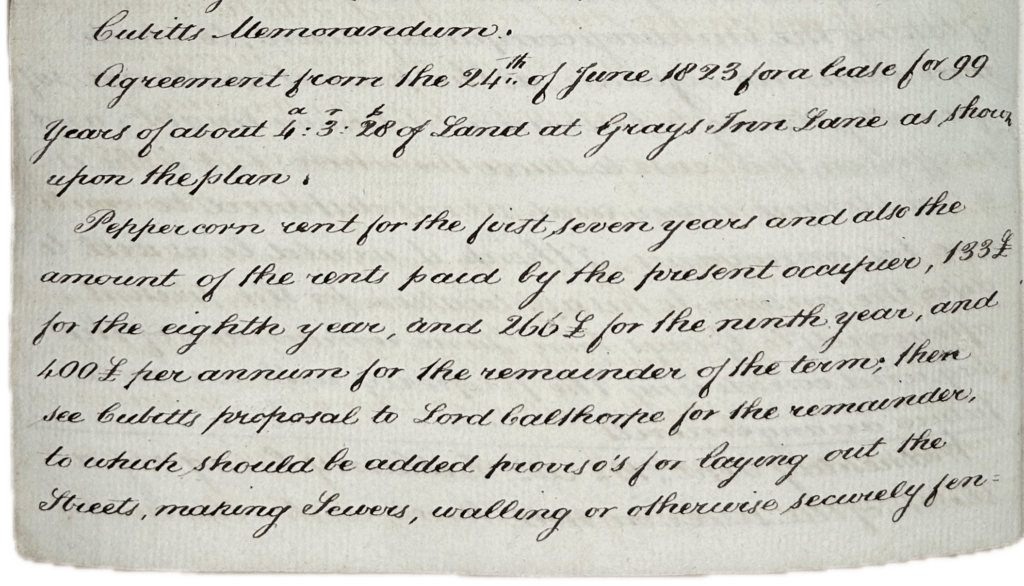 Cubitts Memorandum.
Agreement from the 24th of June 1823 for a lease for 99
Years of about 4a: 3r: 28p of Land at Grays Inn Lane as shown
upon the plan.
Peppercorn rent for the first seven years and also the
amount of the rents paid by the present occupier, 133£
for the eighth year, and 266£ for the ninth year, and
400£ per annum for the remainder of the term; then
see Cubitts proposal to Lord Calthorpe for the remainder,
to which should be added proviso's for laying out the
Streets, making Sewers, walling or otherwise securely fen=